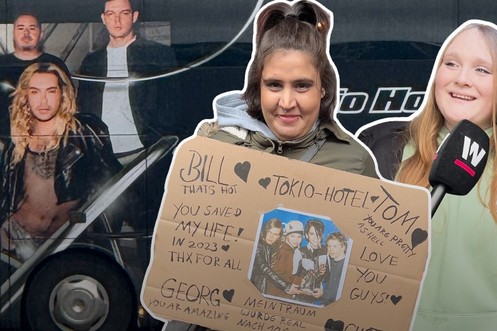 io Ho
W
BILL
THATS HOT
TOKIO-HOTEL
TOM
YOU ARE PRETTY
AS HELL
YOU SAVED
MY LIFE!
IN 2023
THX FOR ALL
LOVE
YOU
GUYS!
GEORG
YOU AR AMAZING
MEIN TRAUM
WURDE REAL
NACH